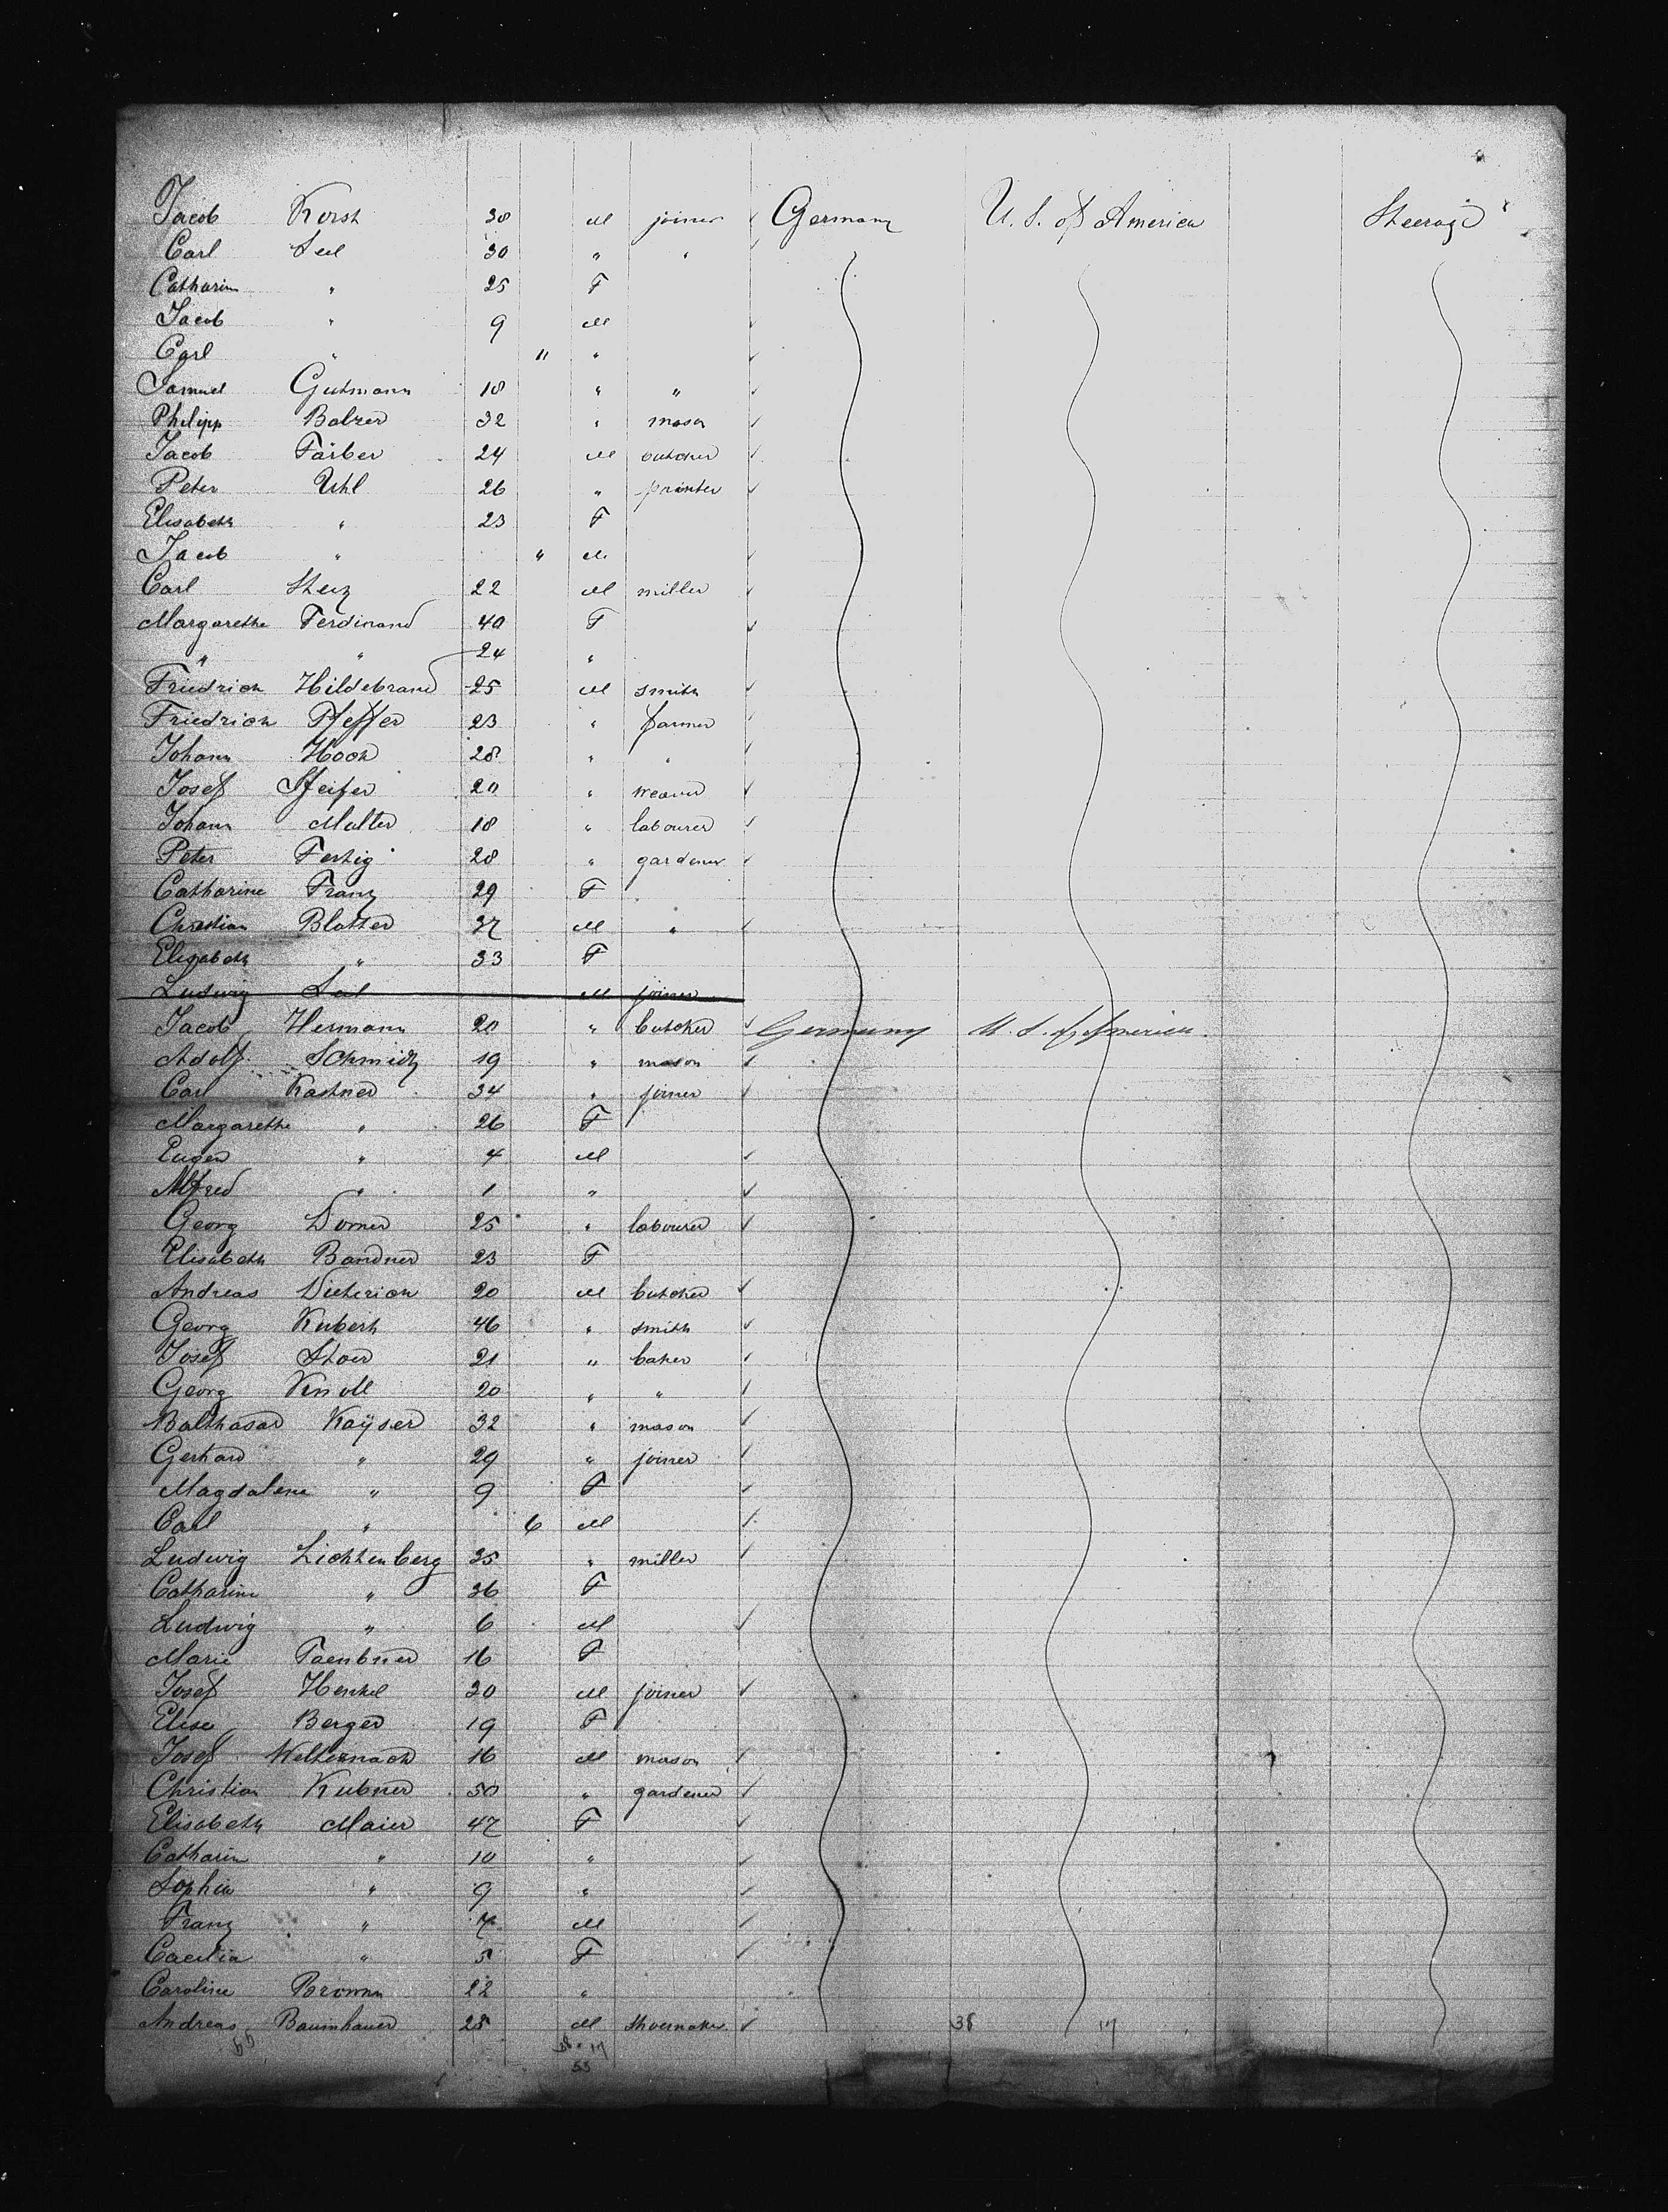 Jacob Korst 30 M joiner Germany U. S. of America Steerage
Carl Seel 30 " "
Catharin " 25 F
Jacob " 9 M
Carl " 11 "
Samuel Gutmann 18 " "
Philipp Balzer 32 " mason
Jacob Färber 24 M butcher
Peter Uhl 26 " painter
Elisabeth " 23 F
Jacob " " M
Carl 22 M miller
Margarethe Ferdinand 40 F
" " 24 "
Friedrich Hildebrand 25 M smith
Friedrich Pfeffer 23 " farmer
Johann Hoch 28 " "
Josef Pfeifer 20 " weaver
Johann Malter 18 " labourer
Peter Fertig 28 " gardener
Catharine Franz 29 F
Christian Blatter 37 M "
Elisabeth " 33 F
Ludwig M joiner
Jacob Hermann 20 " butcher Germany U. S. of America
Adolf Schmidt 19 " mason
Carl Kastner 34 " joiner
Margarethe " 26 F
Eugen " 4 M
Alfred " 1 "
Georg Dorner 25 " labourer
Elisabeth Bandner 23 F
Andreas Dieterich 20 M butcher
Georg Kubert 46 " smith
Josef Stoer 21 " baker
Georg Knoll 20 " "
Balthasar Kayser 32 " mason
Gerhard " 29 " joiner
Magdalene " 9 F
Carl " 6 M
Ludwig Lichtenberg 35 " miller
Catharine " 36 F
Ludwig " 6 M
Marie 16 F
Josef Henkel 30 M joiner
Elise Berger 19 F
Josef 16 M mason
Christian Kubner 50 " gardener
Elisabeth Maier 47 F
Catharin " 10 "
Sophie " 9 "
Franz " 7 M
Caecilia " 5 F
Caroline Bromm 22 "
Andreas Baumhauer 28 M shoemaker 38 17
38 17
55